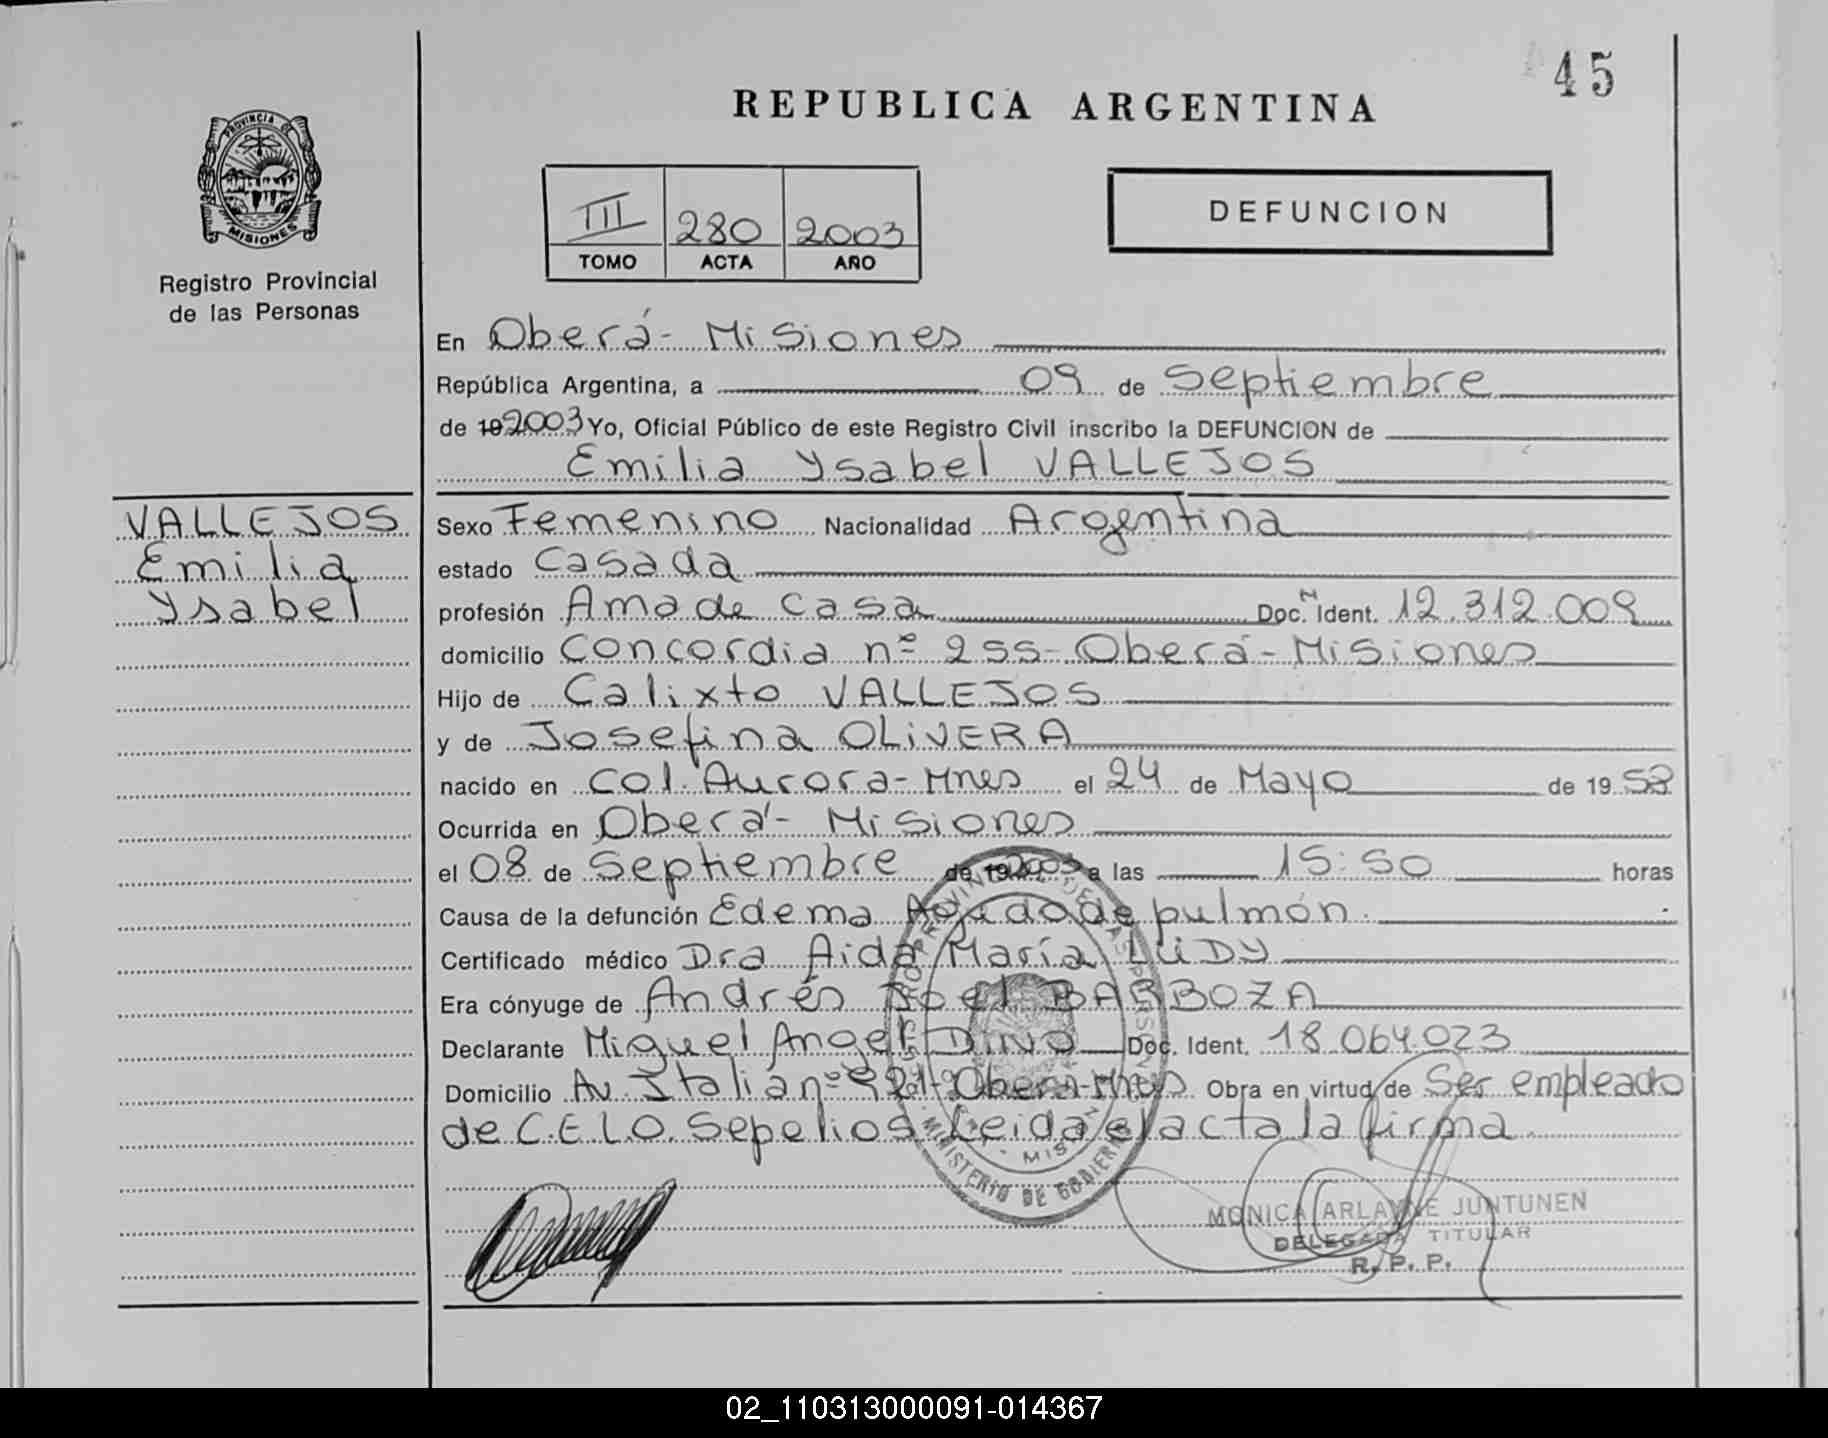 45
REPUBLICA ARGENTINA
PROVINCIA DE
MISIONES
Registro Provincial
de las Personas
III 280 2003
TOMO ACTA AÑO
DEFUNCION
En Oberá - Misiones
República Argentina, a 09 de Septiembre
de 19 2003 Yo, Oficial Público de este Registro Civil inscribo la DEFUNCION de
Emilia Ysabel VALLEJOS
VALLEJOS
Emilia
Ysabel
Sexo Femenino Nacionalidad Argentina
estado Casada
profesión Ama de casa Doc. Ident. 12.312.009
domicilio Concordia nº 255 - Oberá - Misiones
Hijo de Calixto VALLEJOS
y de Josefina OLIVERA
nacido en Col. Aurora - Mnes el 24 de Mayo de 19 58
Ocurrida en Oberá - Misiones
el 08 de Septiembre de 19 2003 a las 15:50 horas
Causa de la defunción Edema Agudo de pulmón.
Certificado médico Dra Aida María LUDY
Era cónyuge de Andrés Joel BARBOZA
Declarante Miguel Angel DINO Doc. Ident. 18.064.023
Domicilio Av. Italia nº Oberá - Mnes. Obra en virtud de Ser empleado
de C.E.L.O. Sepelios. Leida el acta la firma.
MINISTERIO DE GOBIERNO
MONICA ARLAYNE JUNTUNEN
DELEGADA TITULAR
R. P. P.
02_110313000091-014367